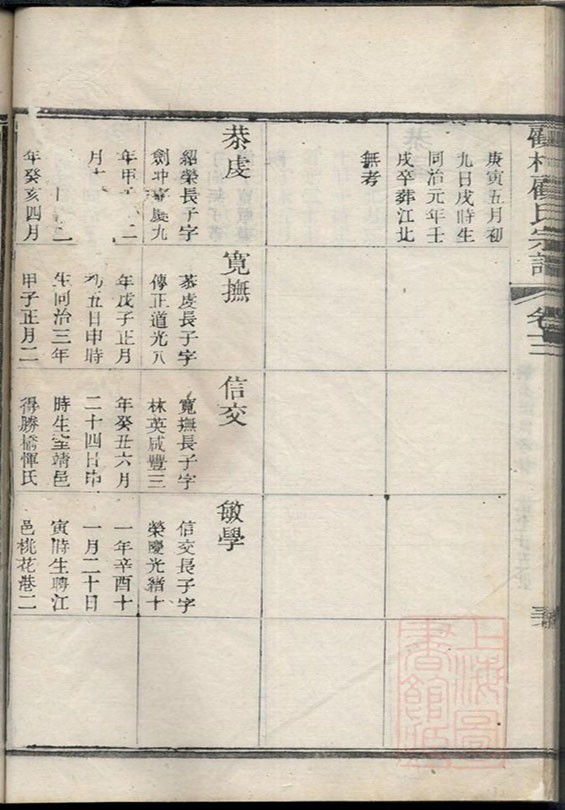 顧氏宗譜
卷十三
庚寅五月初
九日戌時生
同治元年壬
戌卒葬江北
無考
恭虔
紹榮長子字
劍冲嘉慶九
年甲子二
月十
年癸亥四月
寬撫
恭虔長子字
傳正道光八
年戊子正月
初五日申時
生同治三年
甲子正月二
信交
寬撫長子字
林英咸豐三
年癸丑六月
二十四日申
時生室靖邑
得勝橋惲氏
敏學
信交長子字
榮慶光緒十
一年辛酉十
一月二十日
寅時生聘江
邑桃花港二
上海圖
書館藏